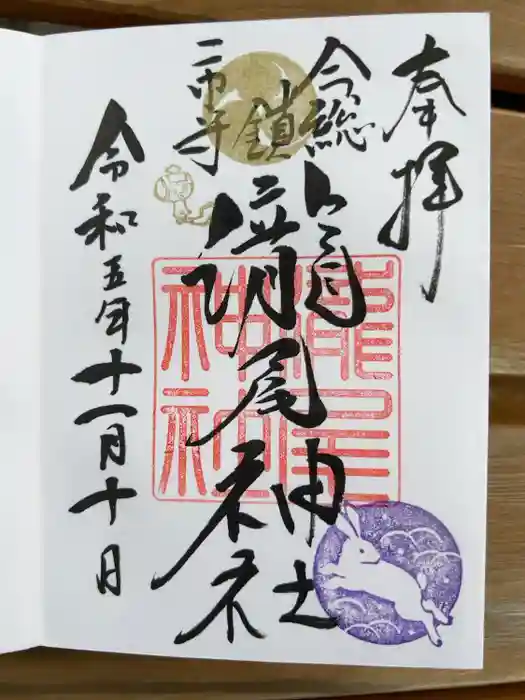 奉拝
今市
総鎮守
瀧尾神社
瀧尾
神社
令和五年十一月十日